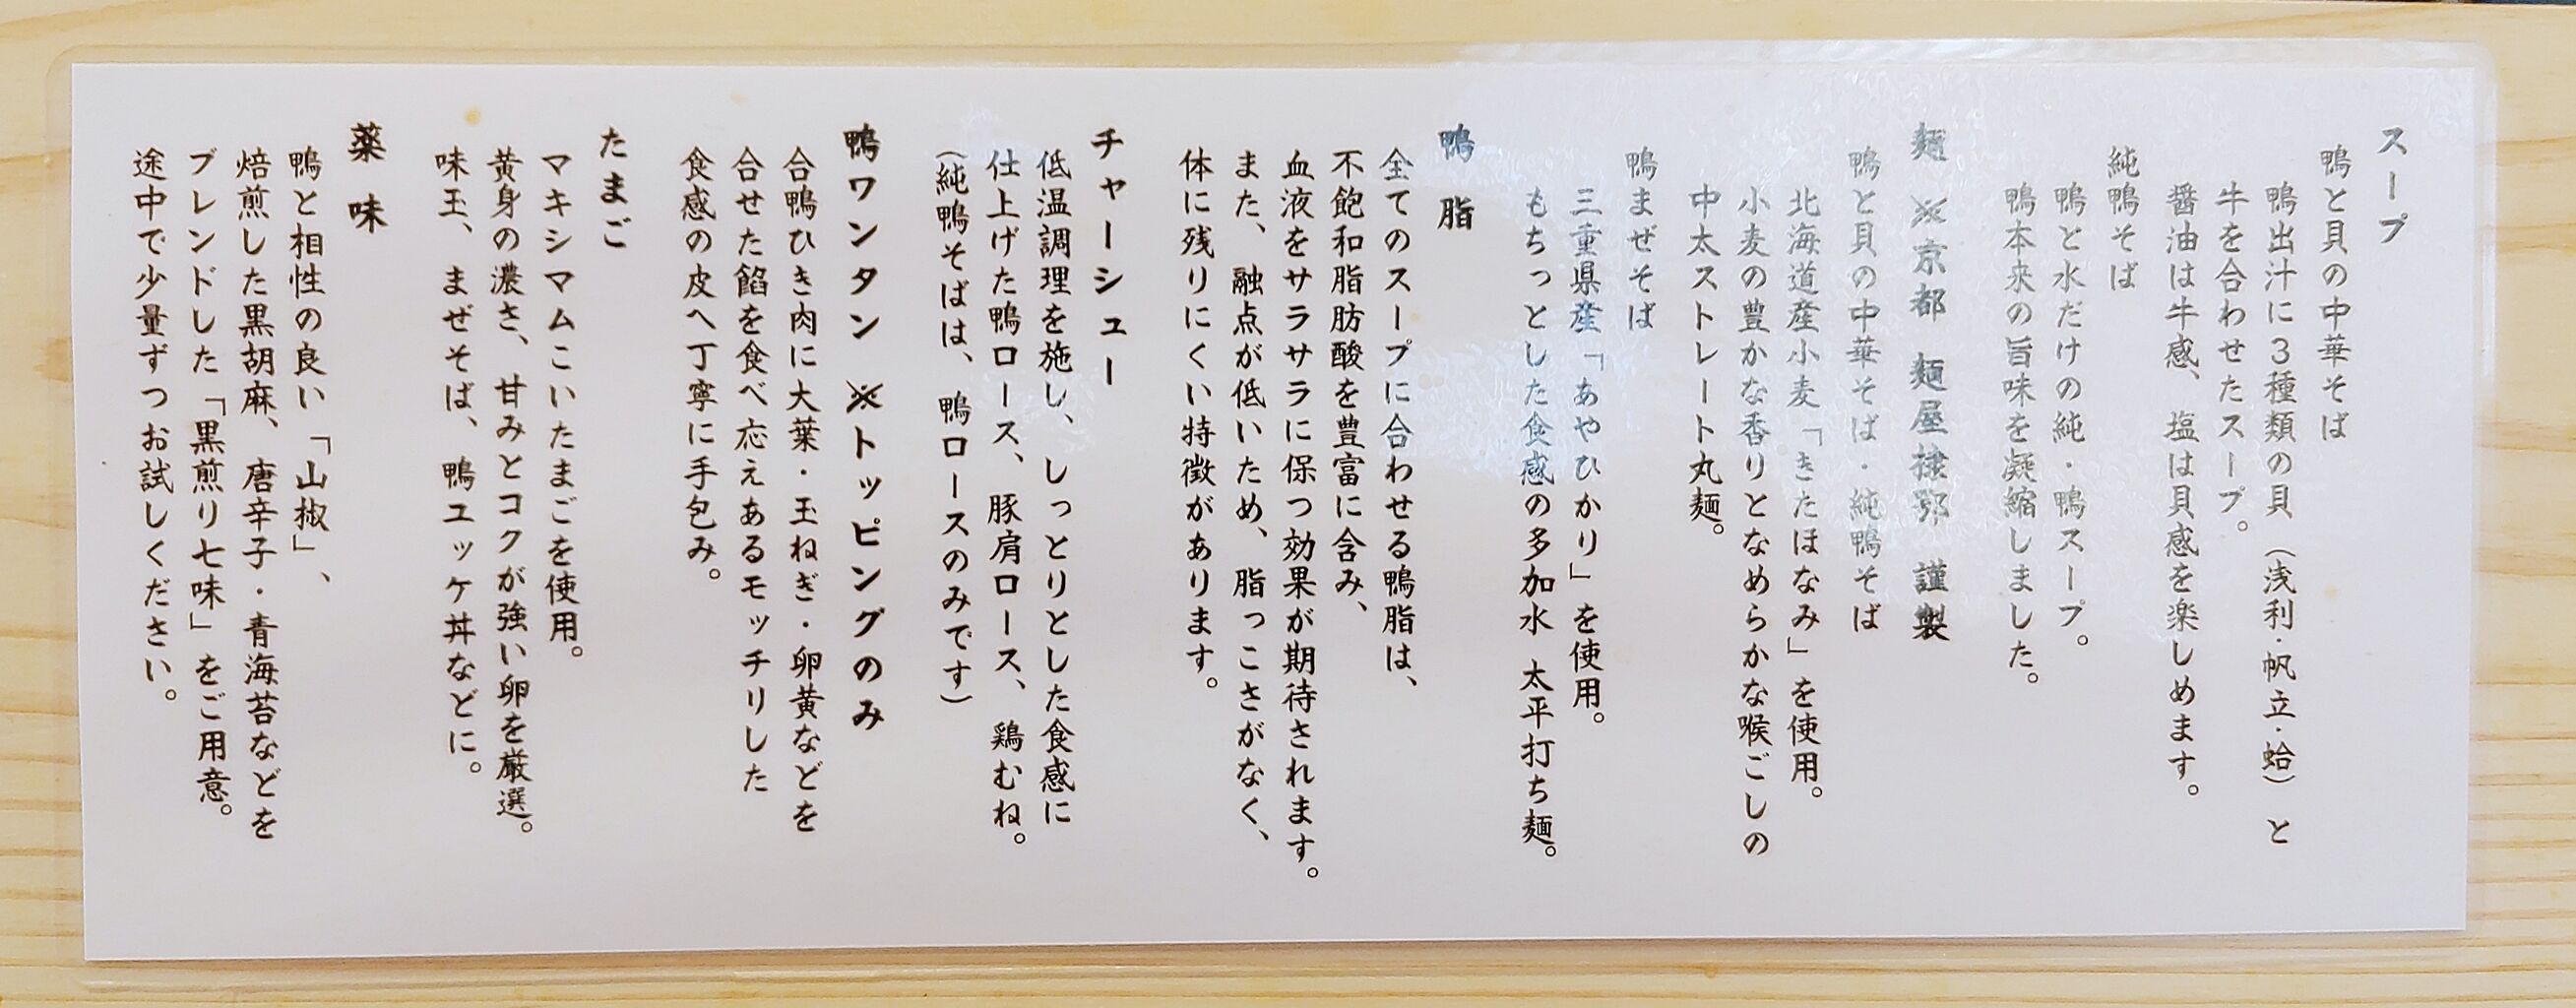 スープ
鴨と貝の中華そば
鴨出汁に３種類の貝（浅利・帆立・蛤）と
牛を合わせたスープ。
醤油は牛感、塩は貝感を楽しめます。
純鴨そば
鴨と水だけの純・鴨スープ。
鴨本来の旨味を凝縮しました。
麺 ※京都 麺屋棣鄂 謹製
鴨と貝の中華そば・純鴨そば
北海道産小麦「きたほなみ」を使用。
小麦の豊かな香りとなめらかな喉ごしの
中太ストレート丸麺。
鴨まぜそば
三重県産「あやひかり」を使用。
もちっとした食感の多加水 太平打ち麺。
鴨 脂
全てのスープに合わせる鴨脂は、
不飽和脂肪酸を豊富に含み、
血液をサラサラに保つ効果が期待されます。
また、融点が低いため、脂っこさがなく、
体に残りにくい特徴があります。
チャーシュー
低温調理を施し、しっとりとした食感に
仕上げた鴨ロース、豚肩ロース、鶏むね。
（純鴨そばは、鴨ロースのみです）
鴨ワンタン ※トッピングのみ
合鴨ひき肉に大葉・玉ねぎ・卵黄などを
合せた餡を食べ応えあるモッチリした
食感の皮へ丁寧に手包み。
たまご
マキシマムこいたまごを使用。
黄身の濃さ、甘みとコクが強い卵を厳選。
味玉、まぜそば、鴨ユッケ丼などに。
薬 味
鴨と相性の良い「山椒」、
焙煎した黒胡麻、唐辛子・青海苔などを
ブレンドした「黒煎り七味」をご用意。
途中で少量ずつお試しください。